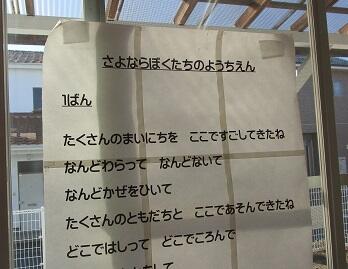 さよならぼくたちのようちえん
1ばん
たくさんのまいにちを　ここですごしてきたね
なんどわらって　なんどないて
なんどかぜをひいて
たくさんのともだちと　ここであそんできたね
どこではしって　どこでころんで